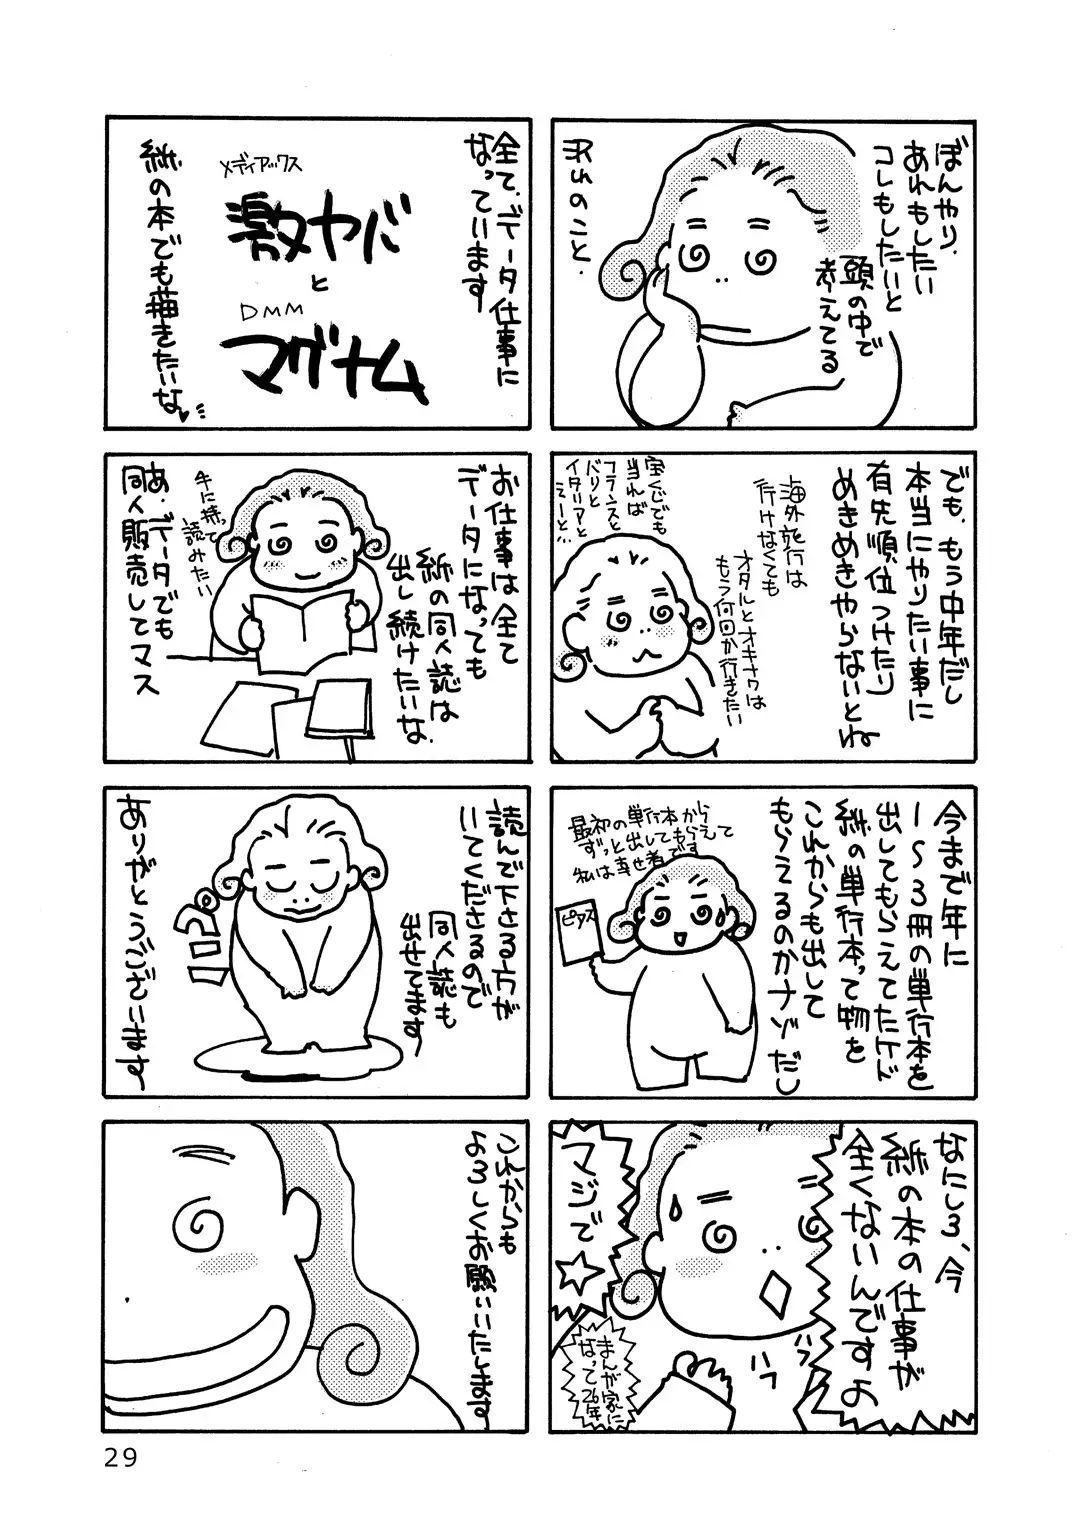 ぼんやり、
あれもしたい
コレもしたいと
頭の中で
考えてる
でも、もう中年だし
本当にやりたい事に
有先順位つけたり
めきめきやらないとね
海外旅行は
行けなくても
オタルとオキナワは
もう何回か行きたい
宝くじでも
当れば
フランスと
パリと
イタリアと
えーと…
今まで年に
1〜3冊の単行本を
出してもらえてたケド
紙の単行本って物を
これからも出して
もらえるのかナゾだし
最初の単行本から
ずっと出してもらえて
私は幸せ者です
ピアス
なにしろ、今
紙の本の仕事が
全くないんですよ
マジで
ハフ
ハフ
まんが家に
なって26年
全て、データ仕事に
なっています
メディアックス
激ヤバ
と
DMM
マグナム
紙の本でも描きたいな
お仕事は全て
データになっても
紙の同人誌は
出し続けたいな
手に持って
読みたい
あ、データでも
同人販売してマス
読んで下さる方が
いてくださるので
同人誌も
出せてます
ペコリ
ありがとうございます
これからも
よろしくお願いいたします
29